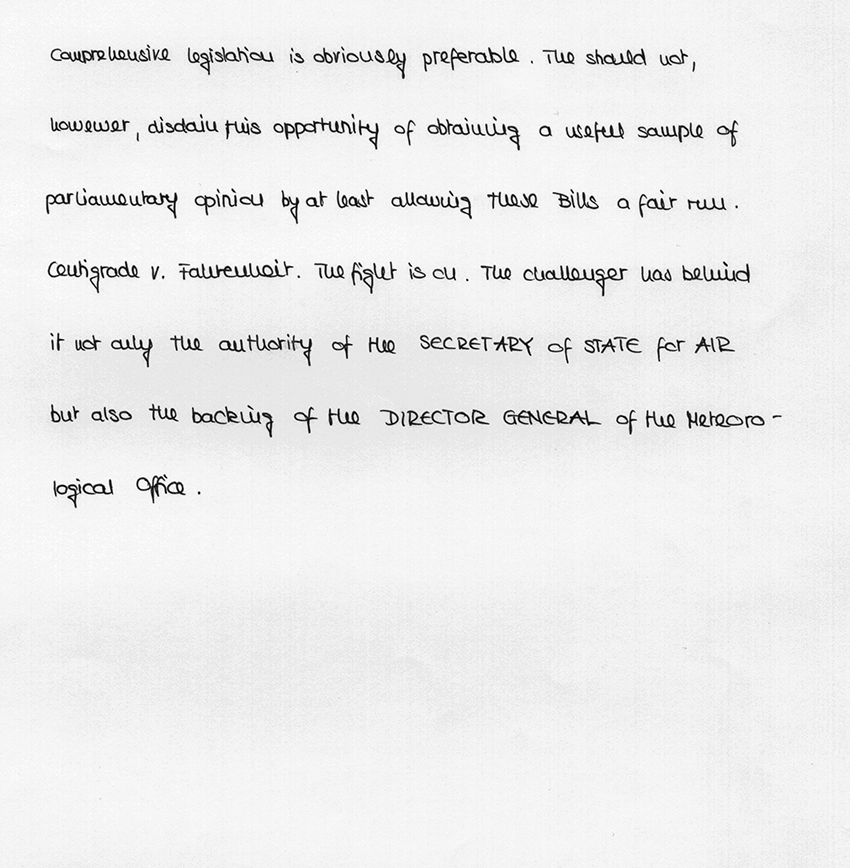 Comprehensive legislation is obviously preferable. The should not,
however, disdain this opportunity of obtaining a useful sample of
parliamentary opinion by at least allowing these Bills a fair run.
Centigrade v. Fahrenheit. The fight is on. The challenger has behind
it not only the authority of the SECRETARY of STATE for AIR
but also the backing of the DIRECTOR GENERAL of the Meteoro-
logical Office.